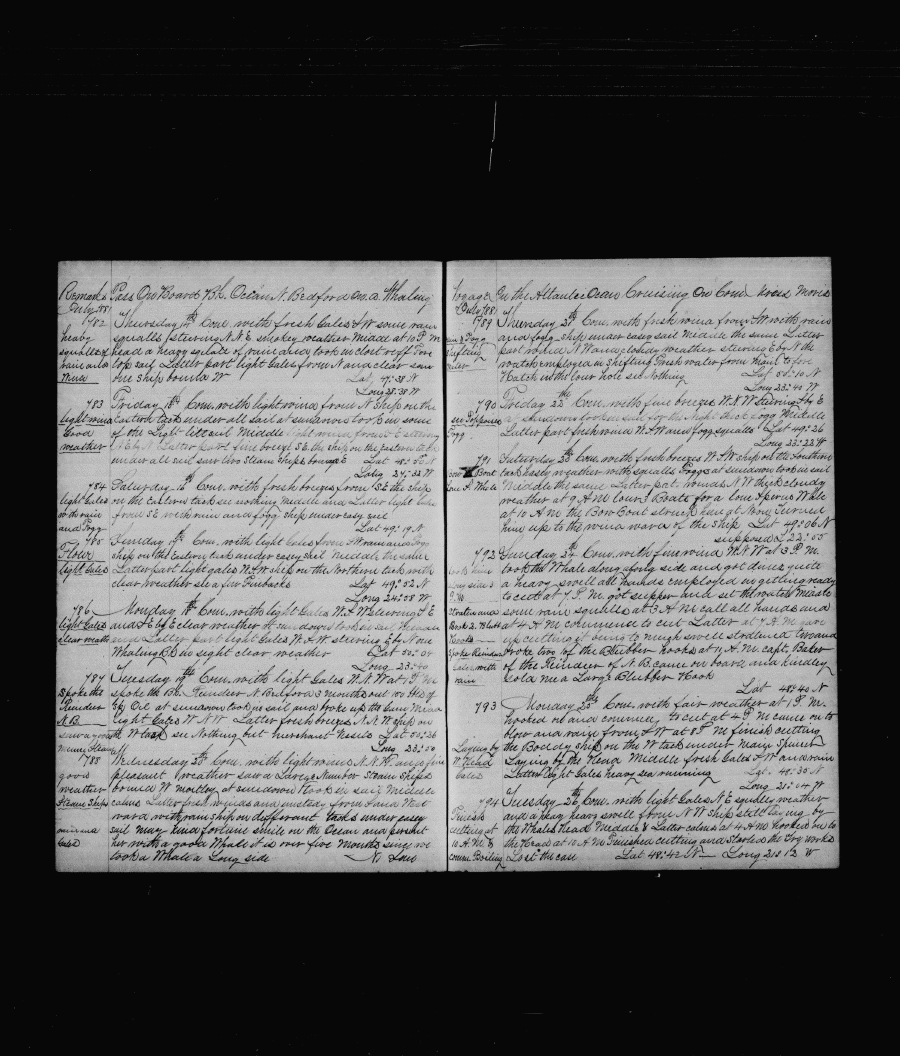 Remarks Pass On Board Bk. Ocean N. Bedford on a Whaling
July 1881
782 Thursday 14th Com. with fresh Gales SW some rain
heavy squalls, steering N.N.E smokey weather Middle at 10 P M
squalls of head a heavy squale of rain and took in close reeff Fore
rain and top sail Latter part light Gales from N and clear saw
Wind one Ship bound W Lat 47:38 N
Long 28:38 W
783 Friday 15th Com. with light wind from N Ship on the
light wind Eastern tack under all sail at sundown took in some
Good of the light sail Middle light wind from E steering
weather N E by N Latter part fine breeze S E the ship on the Eastern tack
under all sail saw two Steam Ships bound E Lat 48: N
Long 27:32 W
784 Saturday 16th Com. with light breezes from SE the ship
light Gales on the Eastern tack see nothing Middle and Latter light Gales
with rain from SE with rain and fogg ship under easy sail
and Fogg Lat 49:19 N
785 Sunday 17th Com. with light Gales from S W rain and Fogg
Flour ship on the Eastern tack under easy sail Middle the same
light Gales Latter part light gales W.S.W ship on the Northern tack with
clear weather see a few Finbacks Lat 49:52 N
Long 24:58 W
786 Monday 18th Com. with light Gales W.S.W steering S E
light Gales and E by E clear weather at sundown took in sail Middle
clear weath and Latter part light Gales W.S.W steering E by N one
Whaling Bk in sight clear weather Lat 50:04
Long 23:40
787 Tuesday 19th Com. with light Gales W.N.W at 1 P M
Spoke the spoke the Bk. Reindeer N. Bedford 3 months out 100 bbls of
Reindeer Sp Oil at sundown took in sail and broke up the Gam Middle
N.B. light Gales W N W Latter fresh breezes N.N.W ship on
the W tack see Nothing but merchant Vessels Lat 50:26
Long 23:50
788 Wednesday 20th Com. with light wind N.N.W and fine
good pleasant weather saw a Large Number Steam Ships
weather bound W mostley at sundown took in sail Middle
Steam Ships calms Latter fresh winds and unsteady from S and West
ward with rain ship on differant tacks under easy
sail may kind fortune smile on the Ocean and present
her with a good Whale it is over five Months since we
took a Whale a Long side No Lon
Voyage In the Atlantic Ocean Cruising On Com
July 1881
789 Thursday 21st Com. with fresh wind from SW with rain
and fogg ship under easy sail Middle the same Latter
part wind N W and cloudy weather steering E by N the
watch employed in shifting Fresh water from Main to fore
Hatch in the lower hole see Nothing Lat 50:10 N
Long 23:40 W
790 Friday 22nd Com. with fine breezes W.N.W steering S by E
at sundown took in sail for the Night thick Fogg Middle
Fogg Latter part fresh wind W.S.W and fogg squalls Lat 49:26
Long 23:22 W
791 Saturday 23rd Com. with fresh breezes W.S.W ship on the Southern
Bow Boat tack hasey weather with squalls Foggs at sundown took in sail
Middle the same Latter part winds N.W thick cloudy
weather at 9 A M lowered 3 Boats for a lone Sperm Whale
at 10 A M the Bow Boat struck him at Noon turned
him up to the wind ward of the Ship Lat 49:06 N
supposed L 22:55
792 Sunday 24th Com. with fine wind W.N.W at 3 P.M.
took the Whale along along side and got dines quite
a heavy swell all hands employed in getting ready
to cut at 7 P.M. got supper and set the watches Middle
some rain squalls at 3 A M call all hands and
at 4 A M commence to cut Latter at 7 A.M. gave
up cutting it being to much swell and
Spoke Reindeer broke two of the Blubber hooks at 11 A.M. capt. Baker
Gales with of the Reindeer of N.B. came on board and kindley
rain sold me a Large Blubber Hook
Lat 48:40 N
793 Monday 25th Com. with fair weather at 1 P.M.
hooked on and commence to cut at 4 P M came on to
blow and rain from SW at 8 P M finish cutting
Laying by the Boddy ship on the W tack under Main Spencer
W. Head Laying by the Head Middle fresh Gales SW and rain
Gales Latter light Gales heavy sea running Lat. 48:30 N
Long 21:04 W
794 Tuesday 26th Com. with light Gales N.E squaley weather
Finish and a heavy swell from N W ship still laying by
cutting at the Whales Head Middle & Latter calms at 4 A M hooked on to
10 A.M. & the Head 10 A M Finished cutting and started the Try works
comm. Boiling Lost the case Lat 48:42 N Long 21:12 W